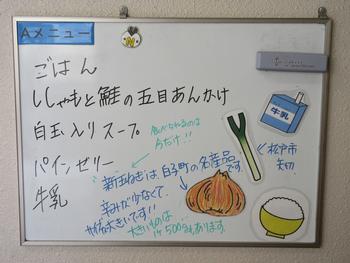 Aメニュー
ごはん
ししゃもと鮭の五目あんかけ
白玉入りスープ
食べられるのは
今だけ!!
パインゼリー
牛乳
新玉ねぎは、白子町の名産品です
辛みが少なくて、
サイズが大きいです!!
大きいものは
1ケ500gもあります。
牛乳
松戸市
矢切